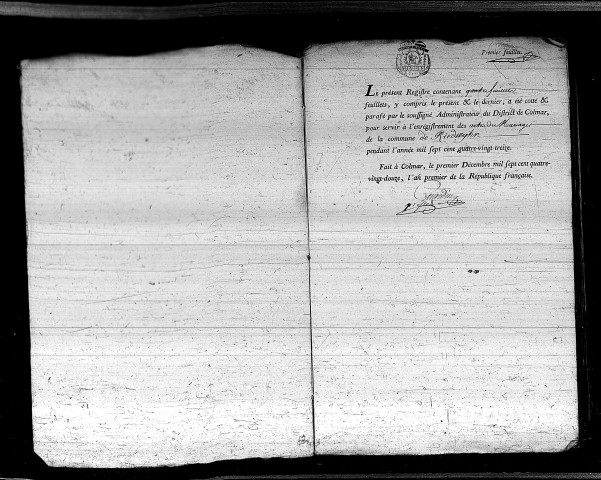 Premier feuillet
Le présent Registre contenant
feuillets, y compris le présent & le dernier, a été coté &
parafé par le soussigné Administrateur du District de Colmar,
pour servir à l'enregistrement des actes de Mariages
de la commune de
pendant l'année mil sept cent quatre-vingt treize.
Fait à Colmar, le premier Décembre mil sept cent quatre-
vingt-douze, l'an premier de la République française.